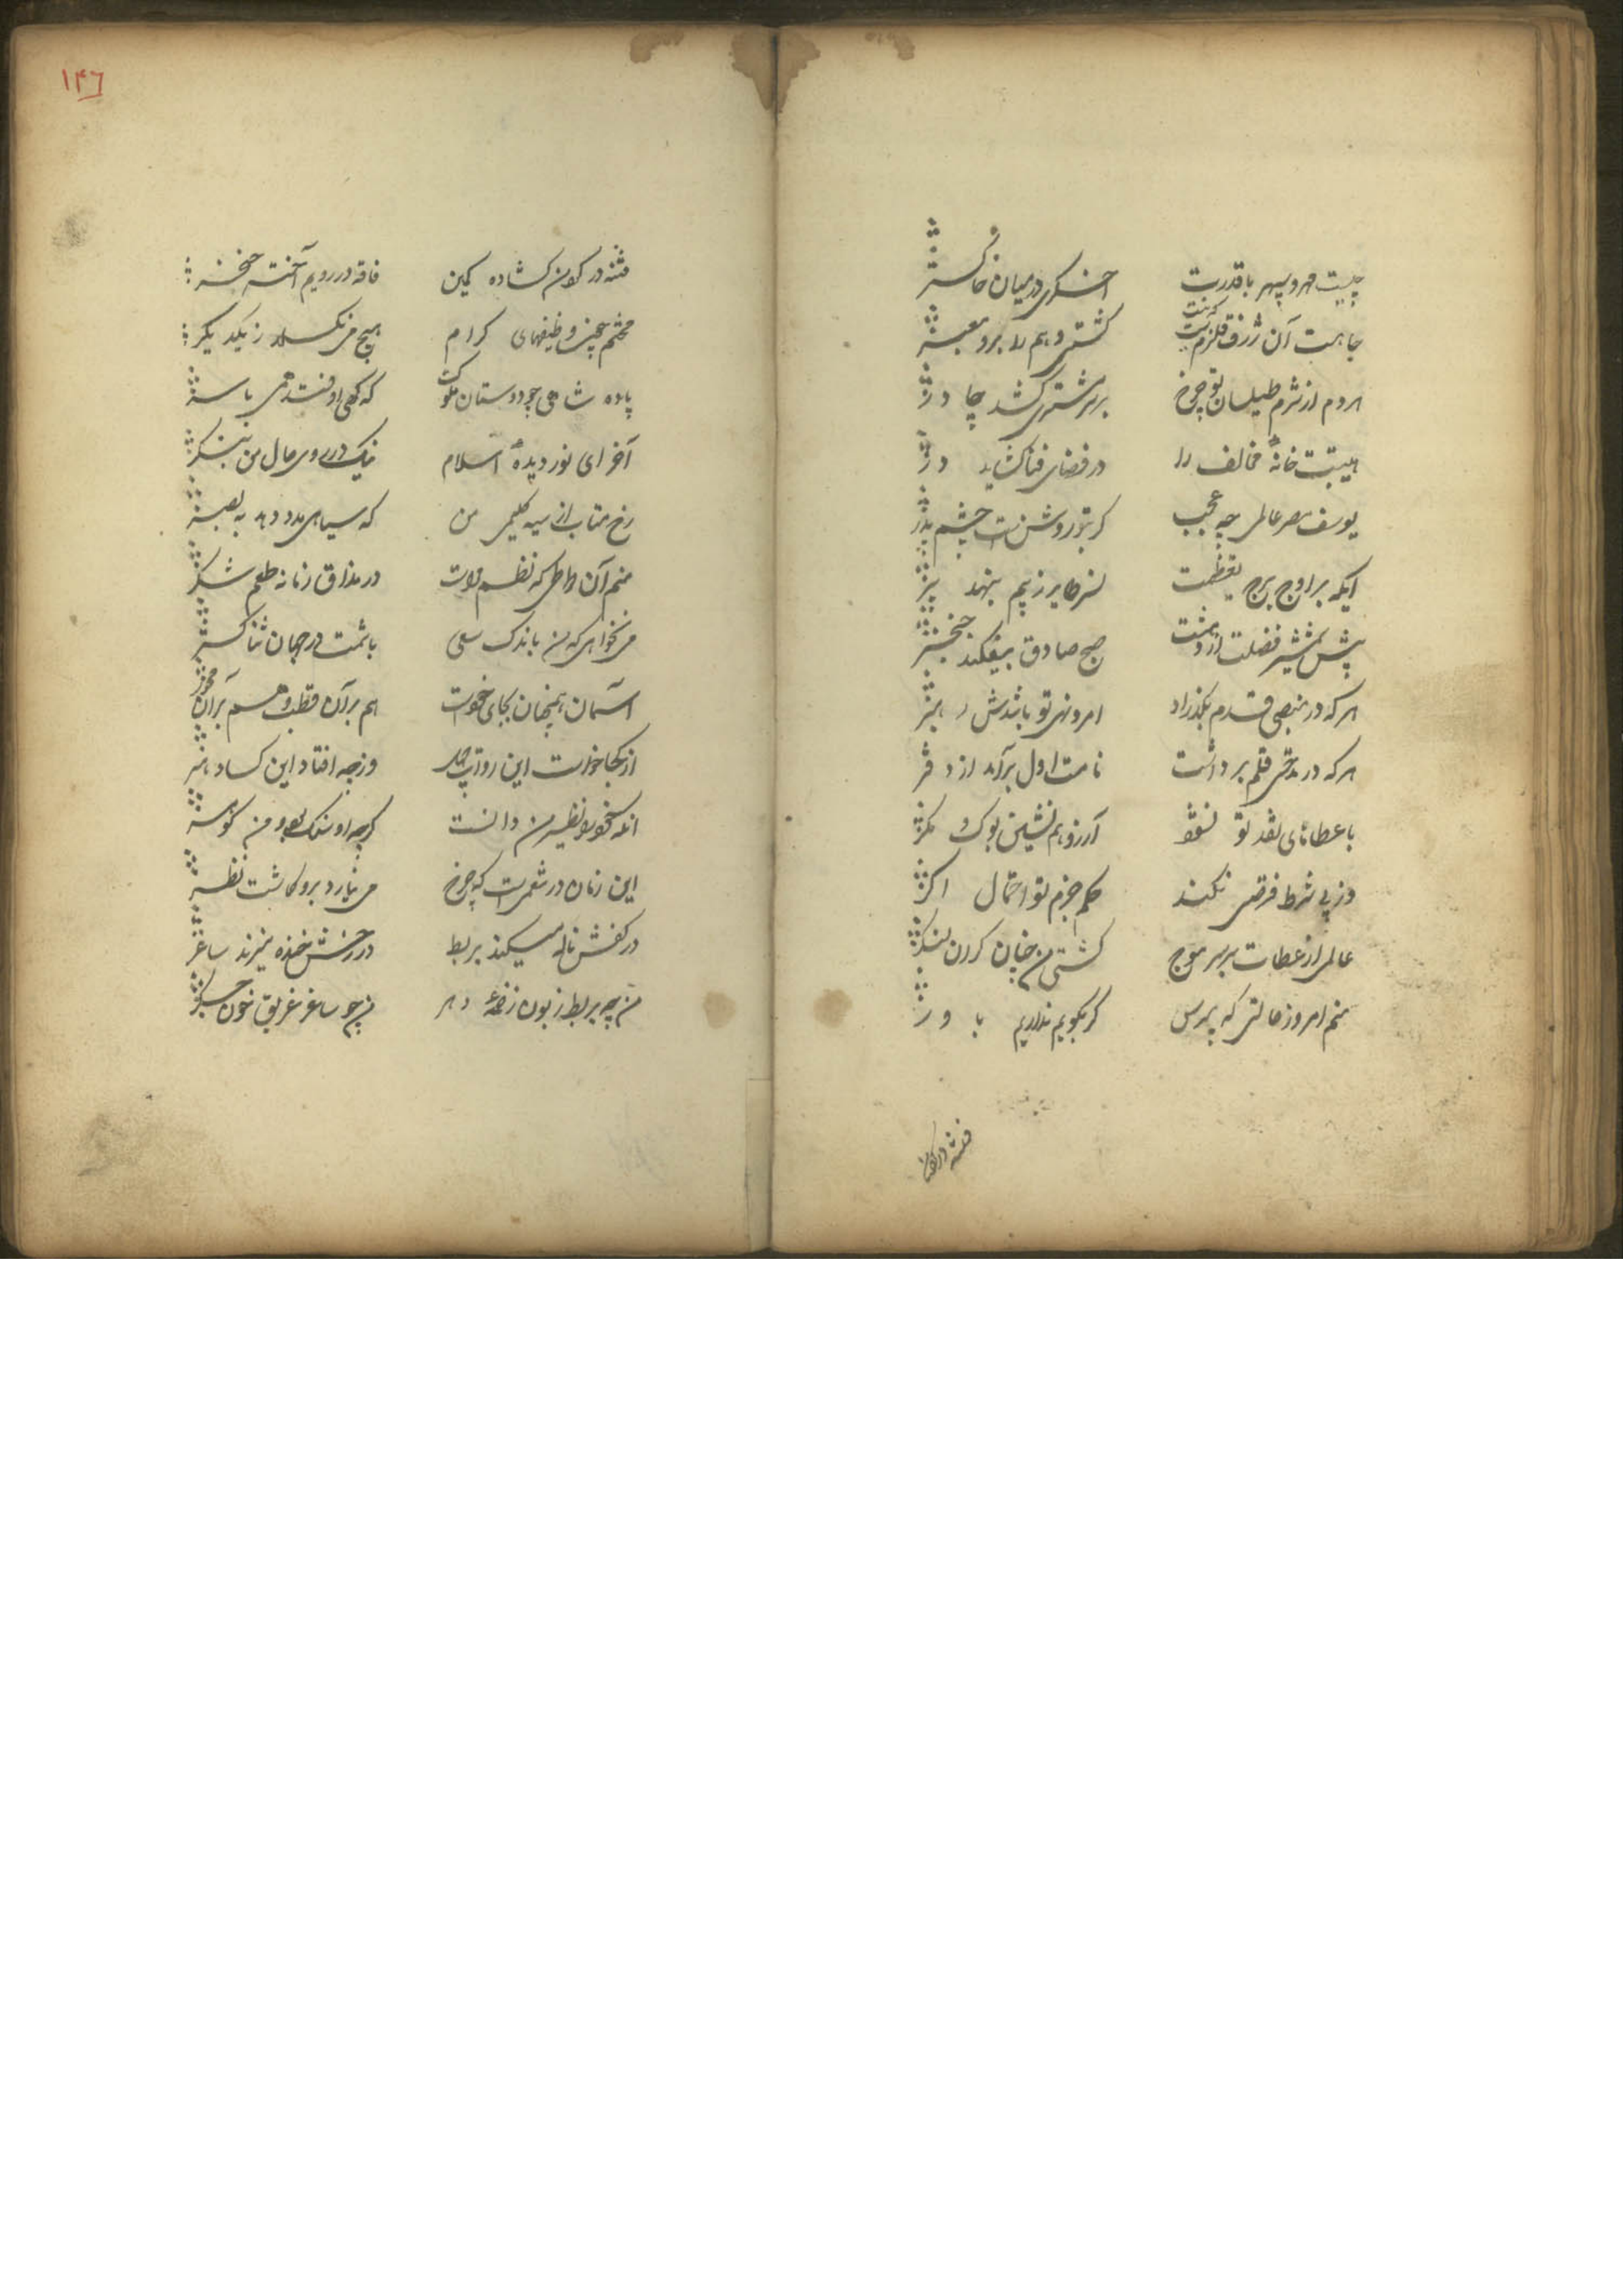 چیست مهر و سپهر با قدرت اخگری در میان خاکستر
جاهت آن ژرف قلزمست که نیست کشتی وهم را برو معبر
هر دم از شرم طیلسان تو چرخ بر سر مشتری کشد چادر
هیبتت خانهٔ مخالف را در فضای فنا گشاید در
یوسف مصر عالمی چه عجب گر بتو روشنست چشم پدر
ایکه بر اوج برج تعظیمت نسر طایر ز بیم بنهد پر
پیش شمشیر فضلت از دهشت صبح صادق بیفکند خنجر
هر که در منصبی قدم بگذارد امر و نهی تو باشدش رهبر
هر که در مدحتی قلم برداشت نامت اول برآید از دفتر
با عطاهای نقد تو نشود آرزو هم نشین بوک و مگر
وز پی شرط فرضی نکند حکم جزم تو احتمال اگر
عالمی از عطات بر سر موج کشتی من چنان گران لنگر
منم امروز حالتی که مپرس گر بگویم نداریم باور
فتنه در کو
۱۴۶
فتنه در کون گشاده کمین فاقه در رویم آخته خنجر
محنتم همچو وظیفهای کرام هیچ می نگسلد ز یکدیگر
پاده شاهی چو دوستان ملوک که گهی اوفتد همی با سر
آخر ای نور دیدهٔ اسلام نیک در روی حال من بنگر
رخ متاب از سیه گلیمی من که سیاهی مدد دهد به بصر
منم آن طوطی که نظم مراست در مذاق زمانه طعم شکر
می نخواهی که من باندک سعی باشمت در جهان ثنا گستر
آسمان همچنان بجای خودست هم بر آن قطب و هم بر آن محور
از کجا خواست این رواج وز چه افتاد این کساد هنر
آنکه نظیر من دانست گرچه او سنگ بود و من گوهر
این زمان در تنعمیست که چرخ می نیارد برو گماشت نظر
در کفش ناله میکند بربط در رخش خنده میزند ساغر
من چو بربط زبون زخمهٔ دهر من چو ساغر غریق خون جگر